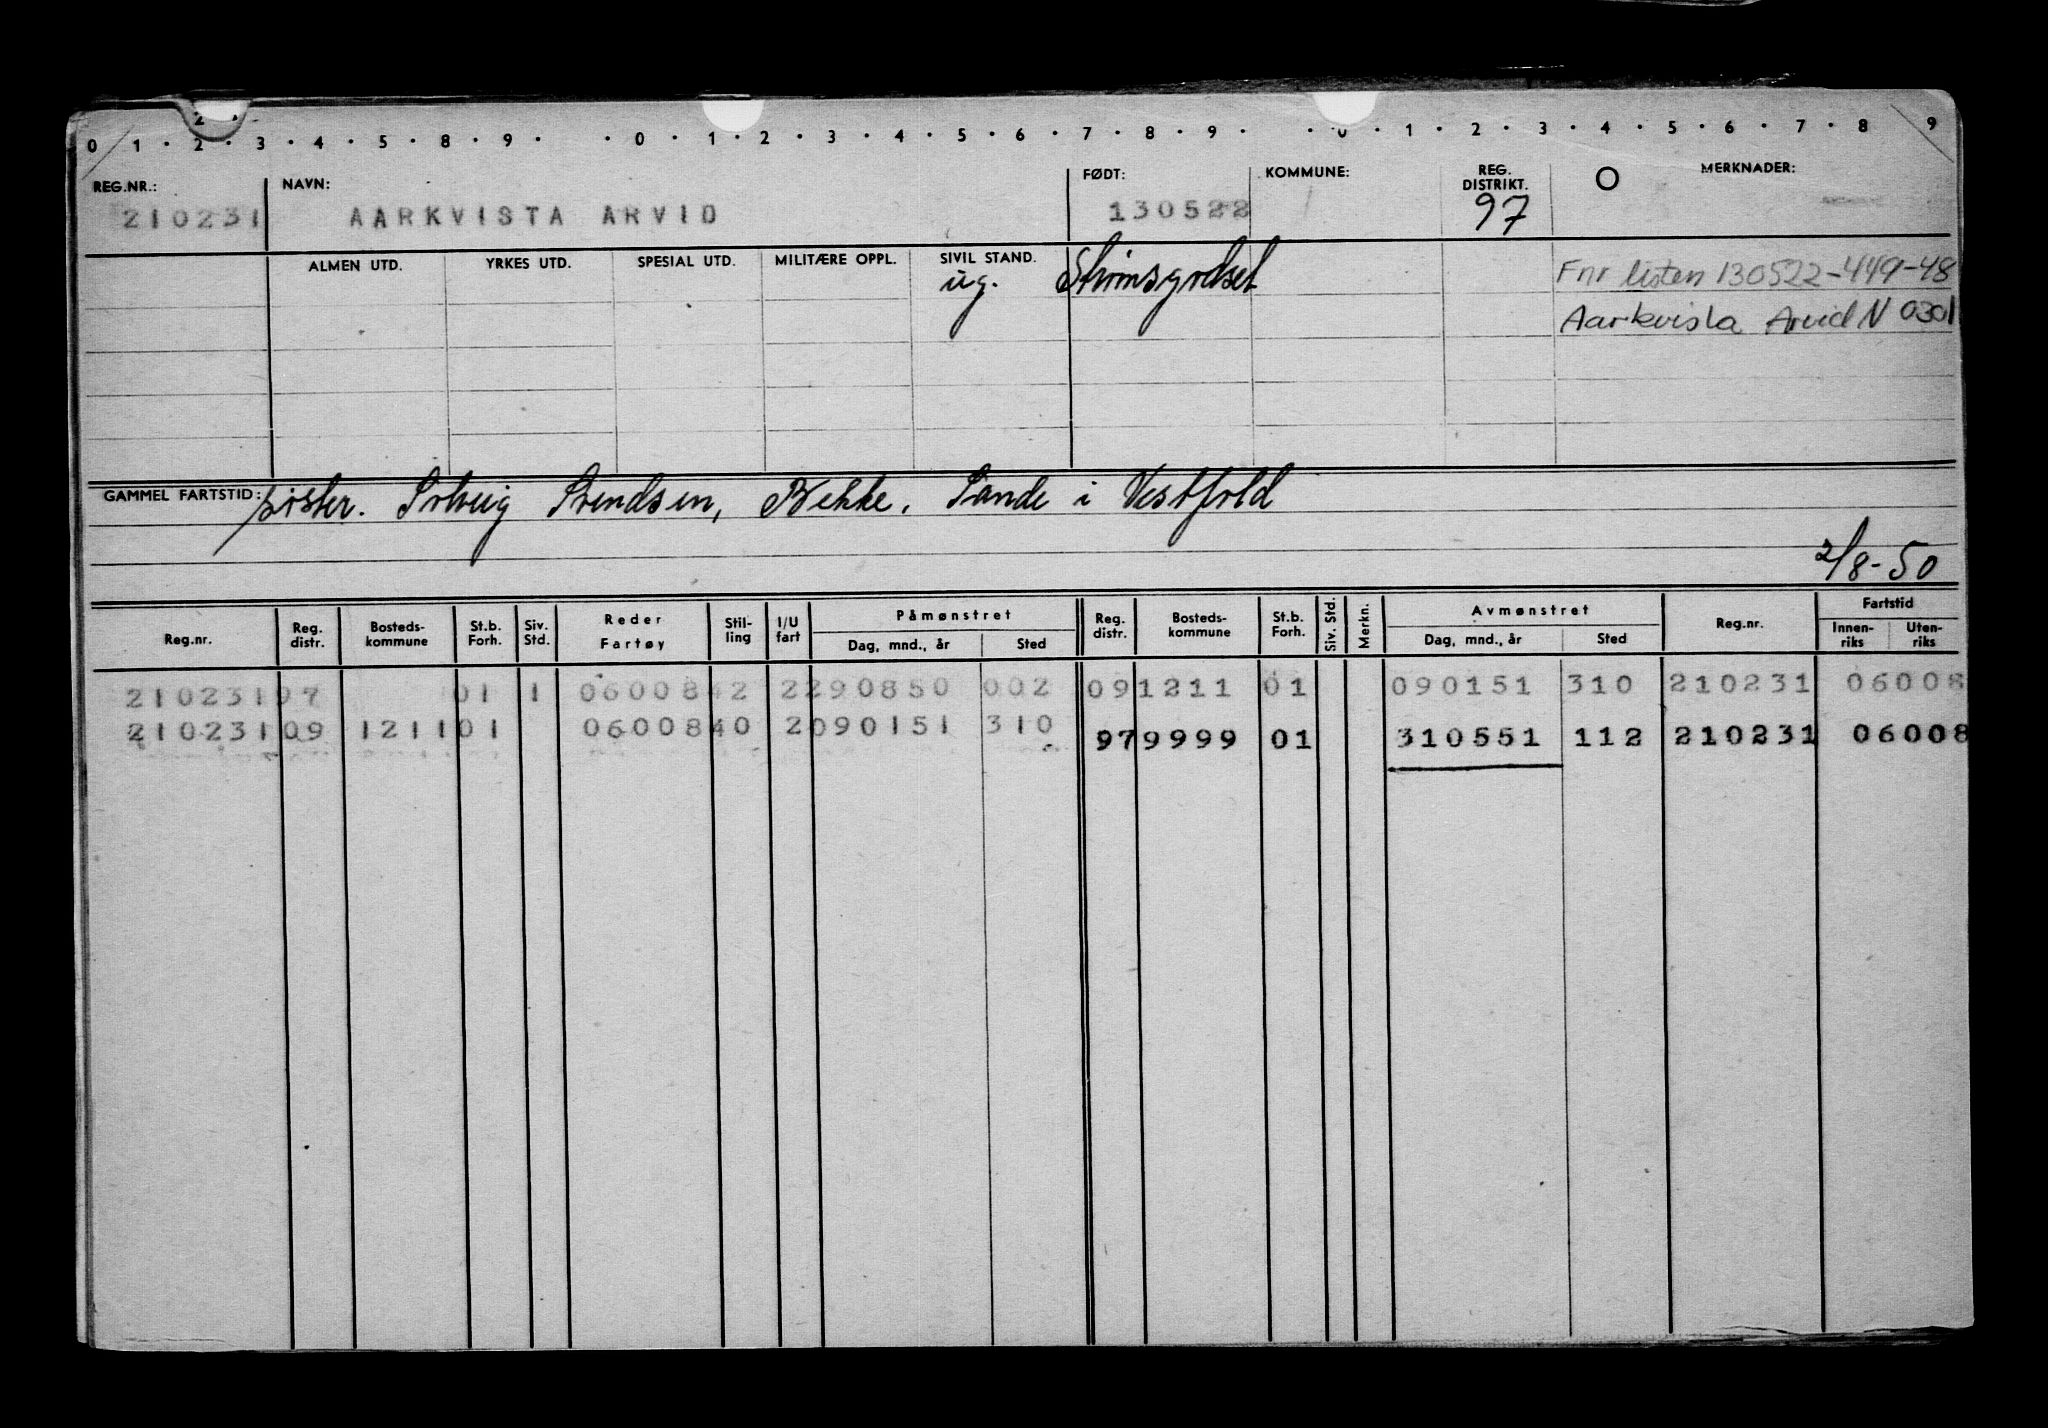 2
0 1 · 2 · 3 · 4 · 5 · 8 · 9 · · 0 · 1 · 2 · 3 · 4 · 5 · 6 · 7 · 8 · 9 · · 0 · 1 · 2 · 3 · 4 · 5 · 6 · 7 · 8 9
REG.NR.: NAVN: FØDT: KOMMUNE: REG. DISTRIKT. O MERKNADER:
210231 AARKVISTA ARVID 130522 97
ALMEN UTD. YRKES UTD. SPESIAL UTD. MILITÆRE OPPL. SIVIL STAND.
ug. Strømsgodset Fnr listen 130522-449-48
Aarkvista Arvid N 0301
GAMMEL FARTSTID: søster. Solveig Svendsen, Bekke. Sande i Vestfold
2/8-50
Reg.nr. Reg. distr. Bosteds-kommune St.b. Forh. Siv. Std. Reder Fartøy Stil-ling I/U fart Påmønstret Dag, mnd., år Sted Reg. distr. Bosteds-kommune St.b. Forh. Siv. Std. Merkn. Avmønstret Dag, mnd., år Sted Reg.nr. Fartstid Innen-riks Uten-riks
210231 97 01 1 06008 42 2 290850 002 09 1211 01 090151 310 210231 06008
210231 09 1211 01 06008 40 2 090151 310 97 9999 01 310551 112 210231 06008